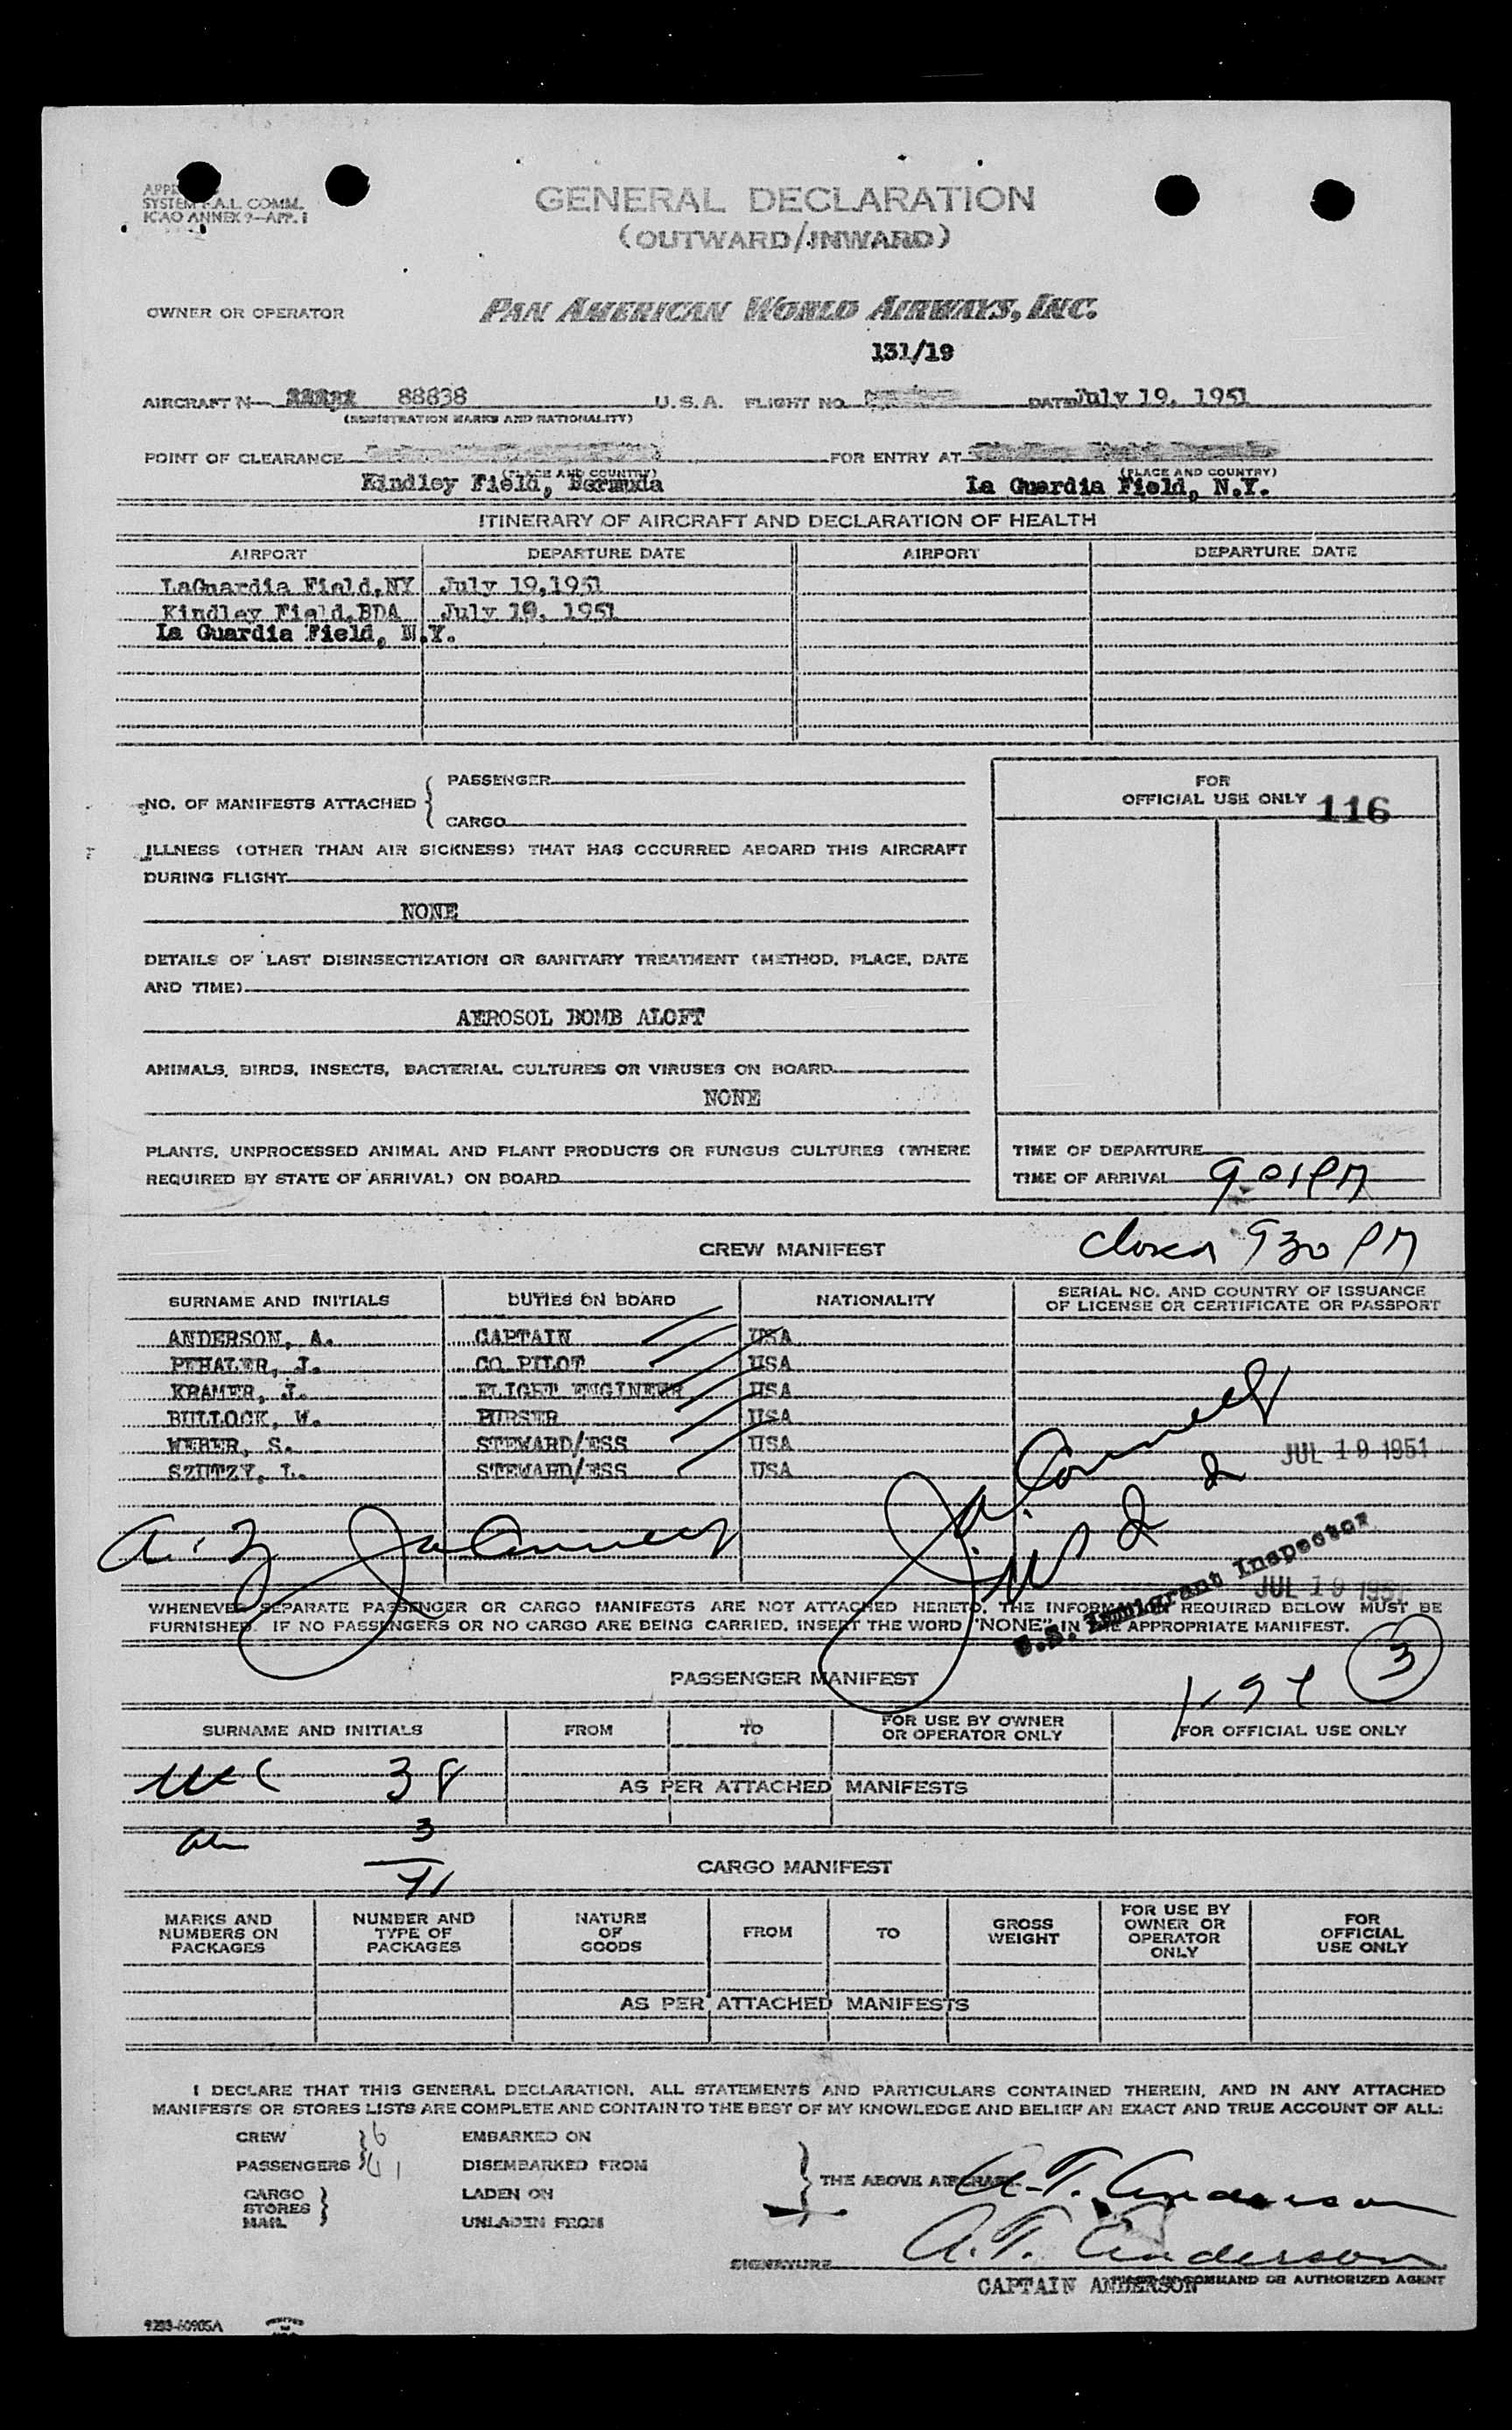 SYSTEM F.A.L. COMM.
ICAO ANNEX 9—APP. 1
GENERAL DECLARATION
(OUTWARD/INWARD)
OWNER OR OPERATOR PAN AMERICAN WORLD AIRWAYS, INC.
131/19
AIRCRAFT N— 88838 U.S.A. FLIGHT NO. DATE July 19, 1951
(REGISTRATION MARKS AND NATIONALITY)
POINT OF CLEARANCE FOR ENTRY AT
(PLACE AND COUNTRY) (PLACE AND COUNTRY)
Kindley Field, Bermuda La Guardia Field, N.Y.
ITINERARY OF AIRCRAFT AND DECLARATION OF HEALTH
AIRPORT DEPARTURE DATE AIRPORT DEPARTURE DATE
LaGuardia Field,NY July 19,1951
Kindley Field,BDA July 19, 1951
La Guardia Field, N.Y.
PASSENGER
NO. OF MANIFESTS ATTACHED
CARGO
FOR
OFFICIAL USE ONLY 116
ILLNESS (OTHER THAN AIR SICKNESS) THAT HAS OCCURRED ABOARD THIS AIRCRAFT
DURING FLIGHT
NONE
DETAILS OF LAST DISINSECTIZATION OR SANITARY TREATMENT (METHOD, PLACE, DATE
AND TIME)
AEROSOL BOMB ALOFT
ANIMALS, BIRDS, INSECTS, BACTERIAL CULTURES OR VIRUSES ON BOARD
NONE
PLANTS, UNPROCESSED ANIMAL AND PLANT PRODUCTS OR FUNGUS CULTURES (WHERE
REQUIRED BY STATE OF ARRIVAL) ON BOARD
TIME OF DEPARTURE
TIME OF ARRIVAL 9.01PM
closed 930 PM
CREW MANIFEST
SURNAME AND INITIALS DUTIES ON BOARD NATIONALITY SERIAL NO. AND COUNTRY OF ISSUANCE
OF LICENSE OR CERTIFICATE OR PASSPORT
ANDERSON, A. CAPTAIN USA
PEHALER, J. CO PILOT USA
KRAMER, J. FLIGHT ENGINEER USA
BULLOCK, W. PURSER USA
WEBER, S. STEWARD/ESS USA
SZUTZY, L. STEWARD/ESS USA
JUL 19 1951
U.S. Immigrant Inspector
JUL 19 1951
WHENEVER SEPARATE PASSENGER OR CARGO MANIFESTS ARE NOT ATTACHED HERETO, THE INFORMATION REQUIRED BELOW MUST BE
FURNISHED. IF NO PASSENGERS OR NO CARGO ARE BEING CARRIED, INSERT THE WORD "NONE" IN THE APPROPRIATE MANIFEST.
PASSENGER MANIFEST
3
SURNAME AND INITIALS FROM TO FOR USE BY OWNER
OR OPERATOR ONLY FOR OFFICIAL USE ONLY
38
AS PER ATTACHED MANIFESTS
3
41
CARGO MANIFEST
MARKS AND
NUMBERS ON
PACKAGES
NUMBER AND
TYPE OF
PACKAGES
NATURE
OF
GOODS
FROM
TO
GROSS
WEIGHT
FOR USE BY
OWNER OR
OPERATOR
ONLY
FOR
OFFICIAL
USE ONLY
AS PER ATTACHED MANIFESTS
I DECLARE THAT THIS GENERAL DECLARATION, ALL STATEMENTS AND PARTICULARS CONTAINED THEREIN, AND IN ANY ATTACHED
MANIFESTS OR STORES LISTS ARE COMPLETE AND CONTAIN TO THE BEST OF MY KNOWLEDGE AND BELIEF AN EXACT AND TRUE ACCOUNT OF ALL:
CREW 6 EMBARKED ON
PASSENGERS 41 DISEMBARKED FROM
THE ABOVE AIRCRAFT
A.T. Anderson
CARGO
STORES
MAIL
LADEN ON
UNLADEN FROM
SIGNATURE A.T. Anderson
CAPTAIN ANDERSON COMMAND OR AUTHORIZED AGENT
9283-60905A